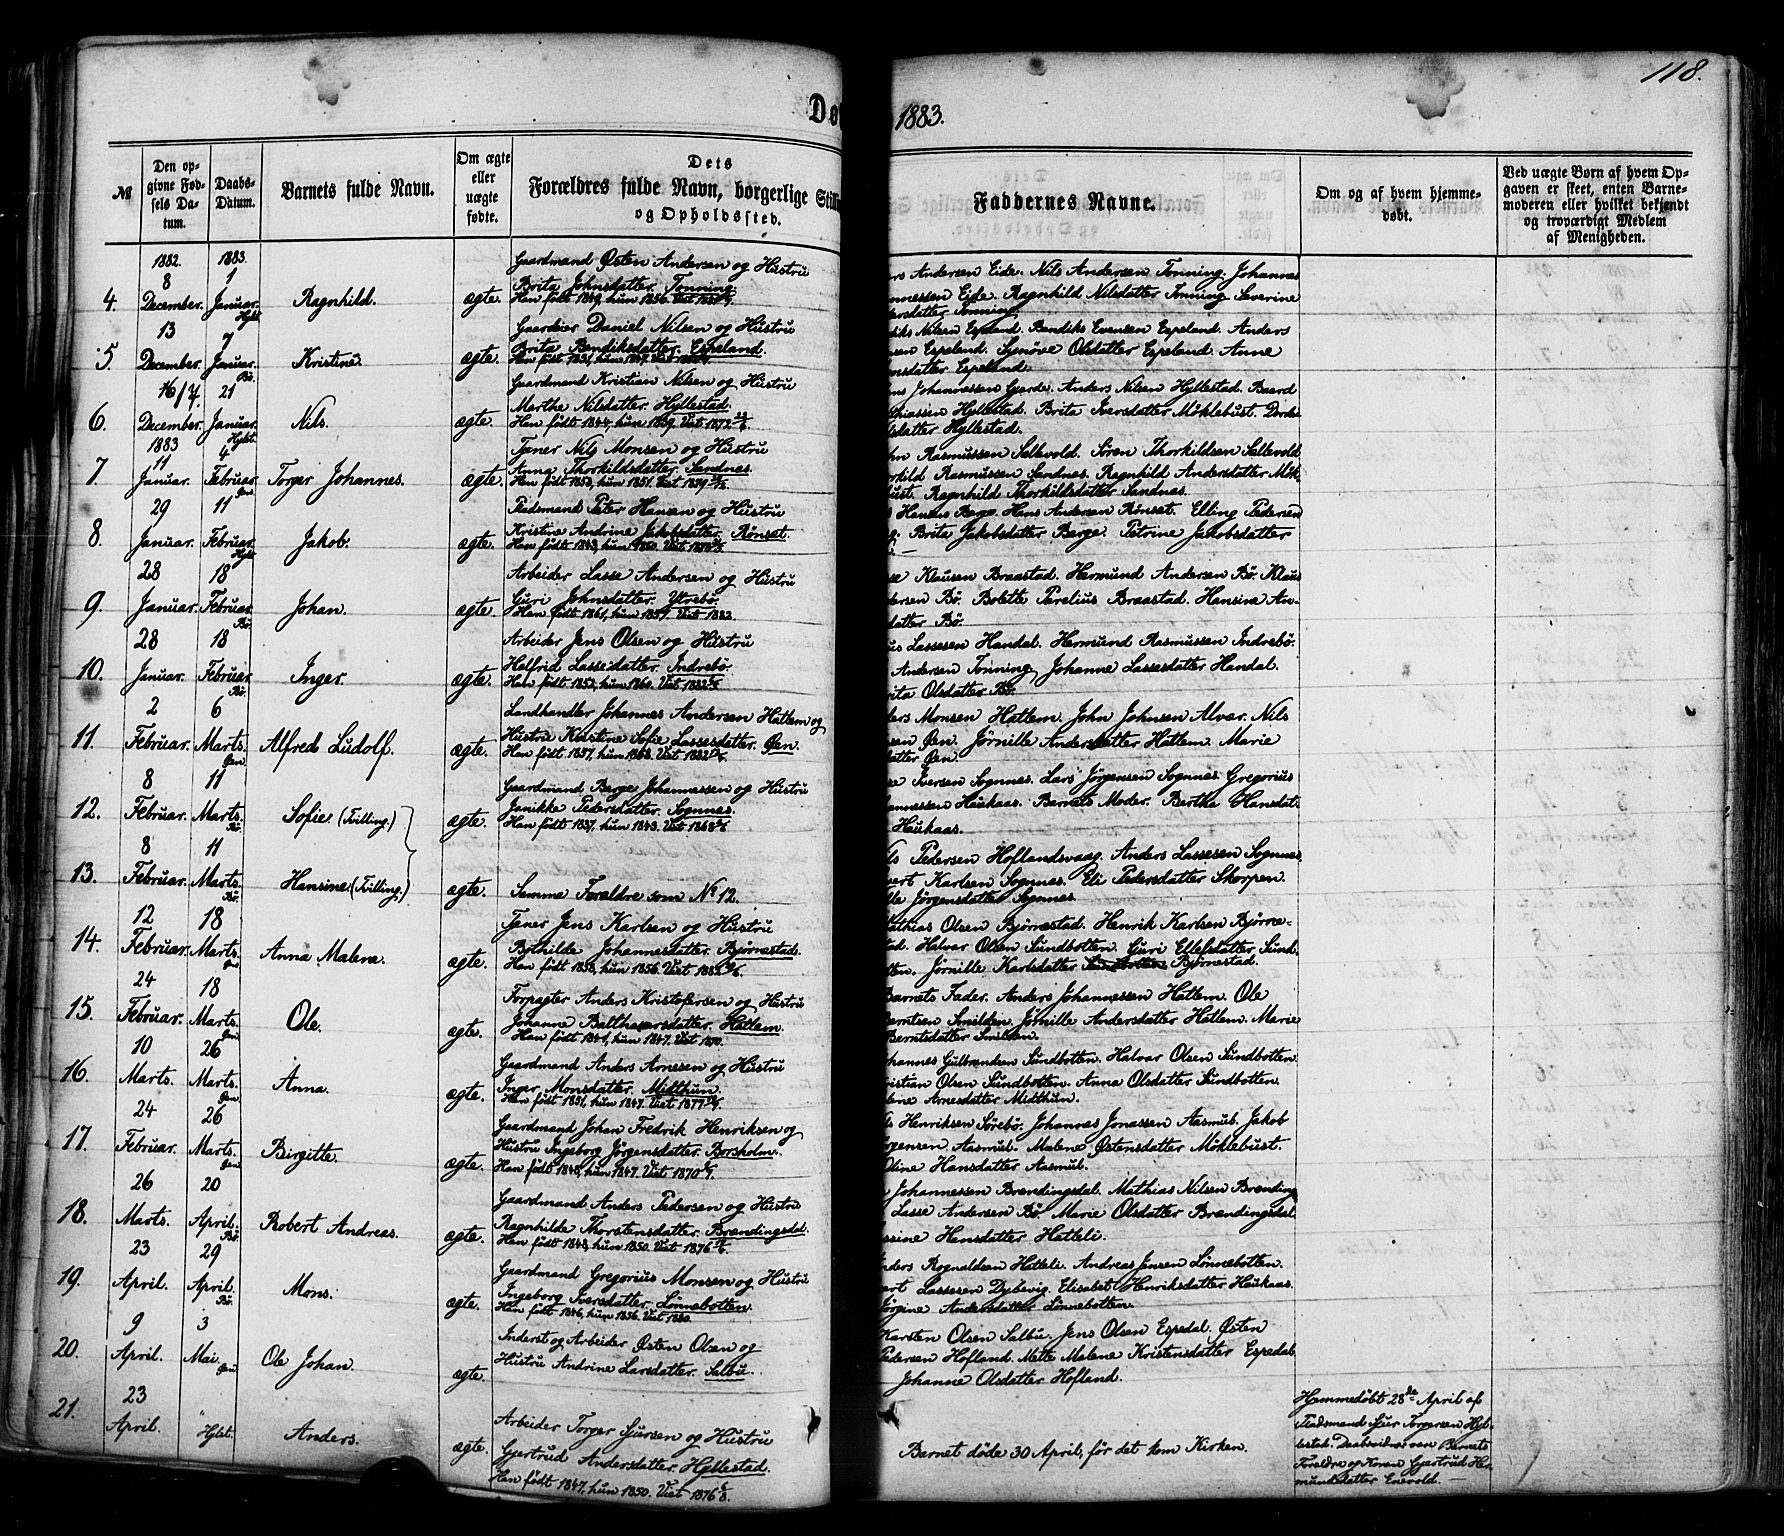 118.
Dø
1883.
№
Den op-
givne Fød-
sels Da-
tum.
Daabs-
Datum.
Barnets fulde Navn.
Om ægte
eller
uægte
fødte.
Dets
Forældres fulde Navn, borgerlige Still
og Opholdssted.
Faddernes Navne.
Om og af hvem hjemme-
døbt.
Ved uægte Børn af hvem Op-
gaven er skeet, enten Barne-
moderen eller hvilket bekjendt
og troværdigt Medlem
af Menigheden.
1882. 1883.
4. 8 December. 1 Januar. Hylst. Ragnhild. ægte.
Gaardmand Østen Andersen og Hustru
Brita Johnsdatter. Tonning.
Han født 1849, hun 1856.
rs Andersen Eide. Nils Andersen Tonning. Johannes
nnessen Eide. Ragnhild Nilsdatter Tonning. Severine
ersdatter Tonning.
5. 13 December. 7 Januar. Bø. Kristine. ægte.
Gaardeier Daniel Nilsen og Hustru
Brita Bendiksdatter. Espeland.
diks Nilsen Espeland. Bendiks Evensen Espeland. Anders
sen Espeland. Synøve Olsdatter Espeland. Anne
nsdatter Espeland.
6. December. 21 Januar. Hylst. Nils. ægte.
Gaardmand Kristian Nilsen og Hustru
Marthe Nilsdatter. Hyllestad.
Han født 1844, hun 1839. Viet 1872
ns Johannessen Gjerde. Anders Nilsen Hyllestad. Baard
thiassen Hyllestad. Brita Iversdatter Møklebust. Dorte
lsdatter Hyllestad.
1883
7. 11 Januar. 4 Februar. Øen. Torger Johannes. ægte.
Tjener Nils Monsen og Hustru
Anna Thorkildsdatter. Sandnes.
Han født 1853, hun 1851. Viet 1879
hn Rasmussen Sallevold. Sören Thorkildsen Sallevold
orkild Rasmussen Sandnes. Ragnhild Andersdatter Møk-
bust. Ragnhild Thorkildsdatter Sandnes.
8. 29 Januar. 11 Februar. Hylst. Jakob. ægte.
Pladsmand Peter Hansen og Hustru
Kristine Andrine Jakobsdatter. Rønset.
Han født 1843, hun 1850.
s Hansen Berge. Hans Andersen Rønset. Elling Pedersen
Brita Jakobsdatter Berge. Petrine Jakobsdatter
9. 28 Januar. 18 Februar. Bø. Johan. ægte.
Arbeider Lasse Andersen og Hustru
Guri Johnsdatter. Ytrebø.
Han født 1861, hun 1857. Viet 1882.
se Klausen Braastad. Hermund Andersen Bø. Klaus
dersen Bø. Bolette Parelius Braastad. Hansine An-
datter Bø.
10. 28 Januar. 18 Februar. Bø. Inger. ægte.
Arbeider Jens Olsen og Hustru
Halfrid Lassesdatter. Indrebø.
Han født 1852, hun 1860. Viet 1882
us Lassesen Handal. Hermund Rasmussen Indrebø.
Andersen Tonning. Johanne Lassesdatter Handal.
rita Olsdatter Bø.
11. 2 Februar. 6 Marts. Øen. Alfred Ludolf. ægte.
Landhandler Johannes Andersen Hatlem og
Hustru Kirstine Sofie Lassesdatter. Øen.
Han født 1857, hun 1863. Viet 1882
ders Monsen Hatlem. John Johnsen Alvar. Nils
sen Øen. Jørnille Andersdatter Hatlem. Marie
datter Øen.
12. 8 Februar. 11 Marts. Bø. Sofie. (Tvilling.) ægte.
Gaardmand Berge Johannessen og Hustru
Janikke Pedersdatter. Sognnes.
Han født 1837, hun 1843. Viet 1868
se Iversen Sognnes. Lars Jørgensen Sognnes. Gregorius
annessen Haukaas. Barnets Moder. Bertha Hansdat-
Haukaas.
13. 8 Februar. 11 Marts. Bø. Hansine. (Tvilling.) ægte.
Samme Forældre som No 12.
ls Pedersen Hoflandsvaag. Anders Lassesen Sognnes.
vert Karlsen Sognnes. Eli Pedersdatter Skorpen.
lle Jørgensdatter Sognnes.
14. 12 Februar. 18 Marts. Øen Anna Malene. ægte.
Tjener Jens Karlsen og Hustru
Bothilde Johannesdatter. Bjørnestad.
Han født 1858, hun 1856. Viet 1882
Mathias Olsen Bjørnestad. Henrik Karlsen Bjørne-
tad. Halvar Olsen Sundbotten. Guri Ellefsdatter Sund-
otten. Jørnille Karlsdatter Sundbotten Bjørnestad.
15. 24 Februar. 18 Marts. Øen. Ole. ægte.
Forpagter Anders Kristofersen og Hustru
Johanne Balthasarsdatter. Hatlem.
Han født 1841, hun 1847. Viet 1870.
Barnets Fader. Anders Johannessen Hatlem. Ole
Berntsen Smilden. Jørnille Andersdatter Hatlem. Marie
Berntsdatter Smilden.
16. 10 Marts. 26 Marts. Øen. Anna. ægte.
Gaardmand Anders Arnesen og Hustru
Inger Monsdatter. Midthun.
Han født 1851, hun 1847. Viet 1877
ohannes Gulbrandsen Sundbotten. Halvar Olsen Sundbotten.
ristian Olsen Sundbotten. Anna Olsdatter Sundbotten.
lene Arnesdatter Midthun.
17. 24 Februar. 26 Marts. Øen. Birgitte. ægte.
Gaardmand Johan Fredrik Henriksen og
Hustru Ingeborg Jørgensdatter. Borsholm.
Han født 1848, hun 1847. Viet 1870
ls Henriksen Sørebø. Johannes Jonassen Aasmul. Jakob
ørgensen Aasmul. Malene Østensdatter Møklebust.
Oline Hansdatter Aasmul.
18. 26 Marts. 20 April. Bø. Robert Andreas. ægte.
Gaardmand Anders Pedersen og Hustru
Ragnhilde Thorstensdatter. Brændingsdal.
Han født 1848, hun 1850. Viet 1876
Johannessen Brændingsdal. Mathias Nilsen Brænding
Lasse Andersen Bø. Marie Olsdatter Brændingsdal
ssine Hansdatter Hatleli.
19. 23 April. 29 April. Bø. Mons. ægte.
Gaardmand Gregorius Monsen og Hustru
Ingeborg Iversdatter. Lønnebotten.
Han født 1846, hun 1856. Viet 1880.
nders Rognaldsen Hatleli. Andreas Jensen Lønnebotten.
ert Lassesen Dybevig. Elisabet Henriksdatter Haukaas.
Jørgine Andersdatter Lønnebotten.
20. 9 April. 3 Mai. Øen Ole Johan. ægte.
Inderst og Arbeider Østen Olsen og
Hustru Andrine Larsdatter. Salbu.
Karsten Olsen Salbu. Jens Olsen Espedal. Østen
Pedersen Hofland. Mette Malene Kristensdatter Espedal.
Johanne Olsdatter Hofland.
21. 23 April. Hylst. Anders. ægte.
Arbeider Torger Sjursen og Hustru
Gjertrud Andersdatter. Hyllestad.
Han født 1847, hun 1850. Viet 1876
Barnet døde 30 April, før det kom Kirken.
Hjemmedøbt 28de April af
Pladsmand Sjur Torgersen Hyl-
lestad. Daabsvidner var Barnets
Forældre og Konen Gjertrud Her-
mundsdatter Enevold.